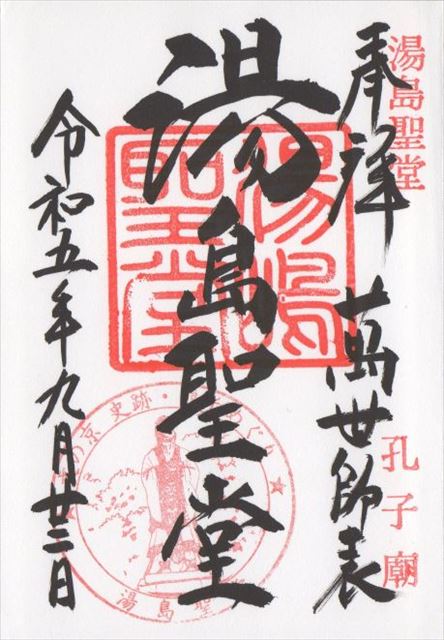 湯島聖堂
孔子廟
奉拝 萬世師表
湯島聖堂
湯島聖堂
令和五年九月廿三日
京史跡・
湯島聖